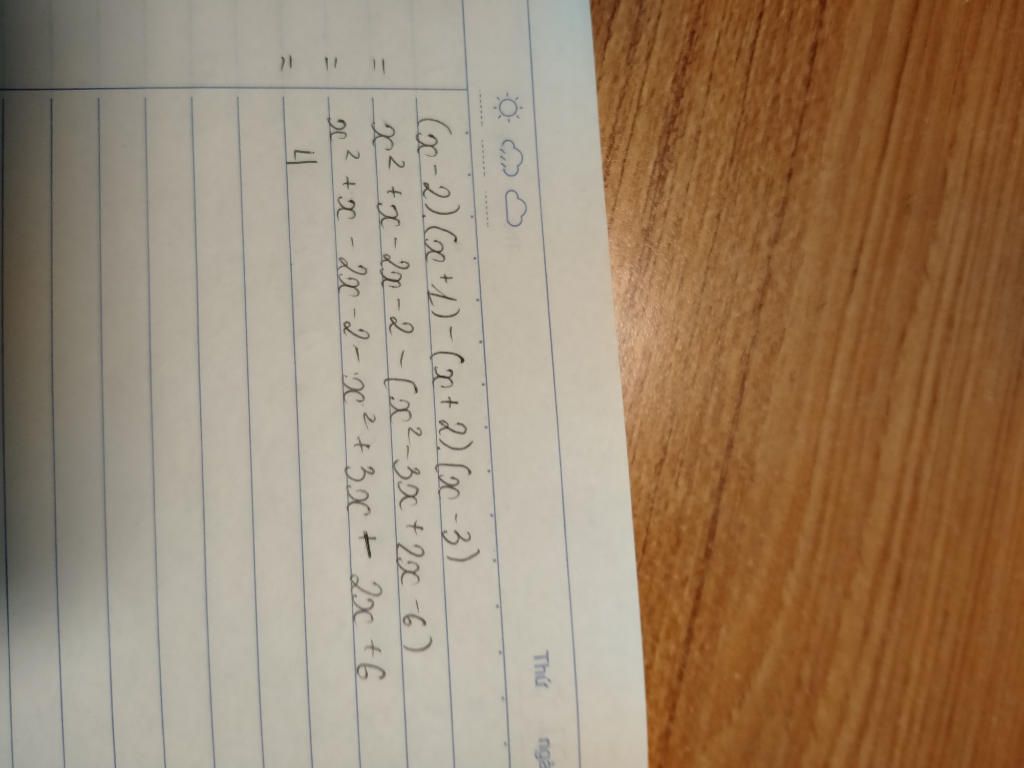 Thứ
ngà
(x-2)(x+1)-(x+2)(x-3)
= x²+x-2x-2-(x²-3x+2x-6)
= x²+x-2x-2-x²+3x-2x+6
= 4